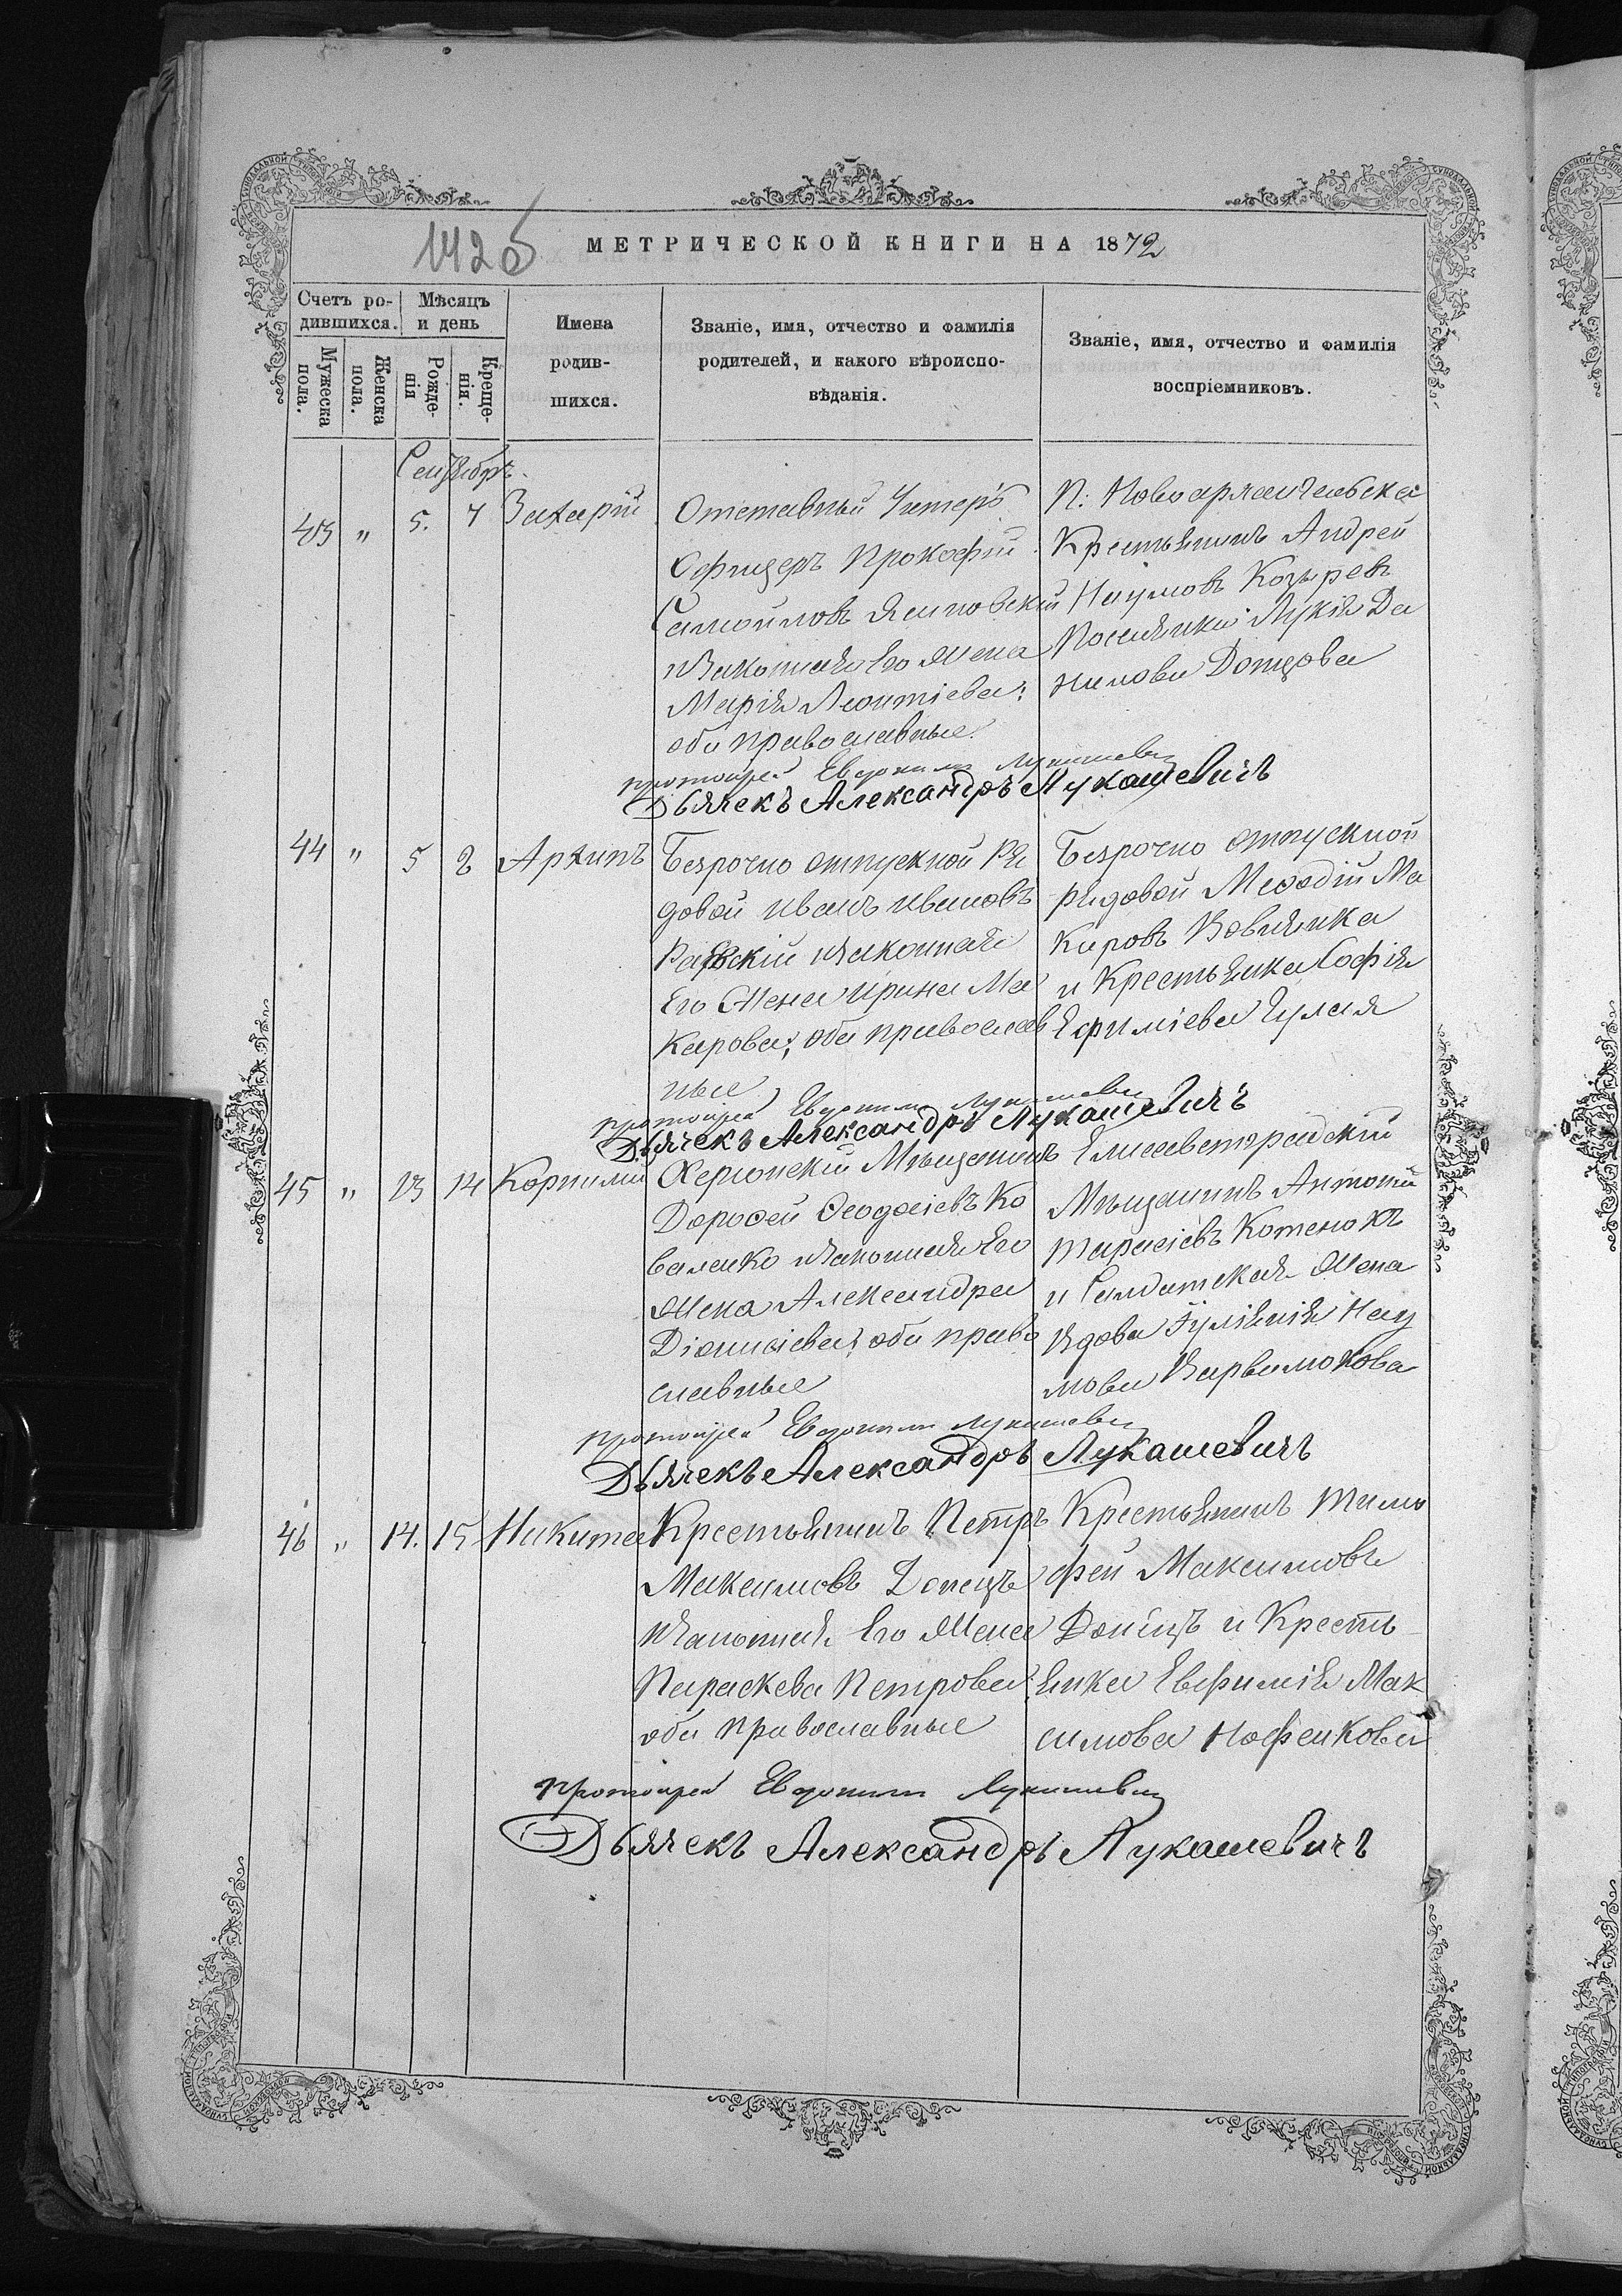 МЕТРИЧЕСКОЙ КНИГИ НА 1872
Счетъ ро-
дившихся.
Мужеска
пола.
Женска
пола.
Мѣсяцъ
и день
Рожде-
нія
Креще-
нія.
Имена
родив-
шихся.
Званіе, имя, отчество и фамилія
родителей, и какого вѣроиспо-
вѣданія.
Званіе, имя, отчество и фамилія
воспріемниковъ.
Сентябрь.
43 " 5. 7 Захарій
Отставный Унтеръ
Офицеръ Прокофій
Самойловъ
и законная его жена
Марія Леонтіева;
оба православные.
П. Новоархангельска
Крестьянинъ Андрей
Наумовъ Козыревъ
Поселянка Лукія Да
нилова Донцова
протоіерей Евдокимъ Лукашевичъ
Дьячекъ Александръ Лукашевичъ
44 " 5 8 Архипъ
Безрочно отпускной Ря
довой Иванъ Ивановъ
и законная
его жена Ирина Ма
карова; оба православ
ные
Безрочно отпускной
рядовой Меѳодій Ма
каровъ
и Крестьянка Софія
Ефиміева
протоіерей Евдокимъ Лукашевичъ
Дьячекъ Александръ Лукашевичъ
45 " 13 14 Корнилій
Херсонскій Мѣщанинъ
Дороѳей Ѳеодосіевъ Ко
валенко и законная его
жена Александра
Діонисіева; оба право
славные
Елисаветградскій
Мѣщанинъ Антоній
Тарасіевъ Котенокъ
и Солдатская жена
вдова Іуліанія Нау
мова
протоіерей Евдокимъ Лукашевичъ
Дьячекъ Александръ Лукашевичъ
46 " 14. 15 Никита
Крестьянинъ Петръ
Максимовъ Донецъ
и законная его жена
Параскева Петрова
оба православные
Крестьянинъ Тимо
фей Максимовъ
Донецъ и Кресть-
янка Евфимія Мак
симова
протоіерей Евдокимъ Лукашевичъ
Дьячекъ Александръ Лукашевичъ